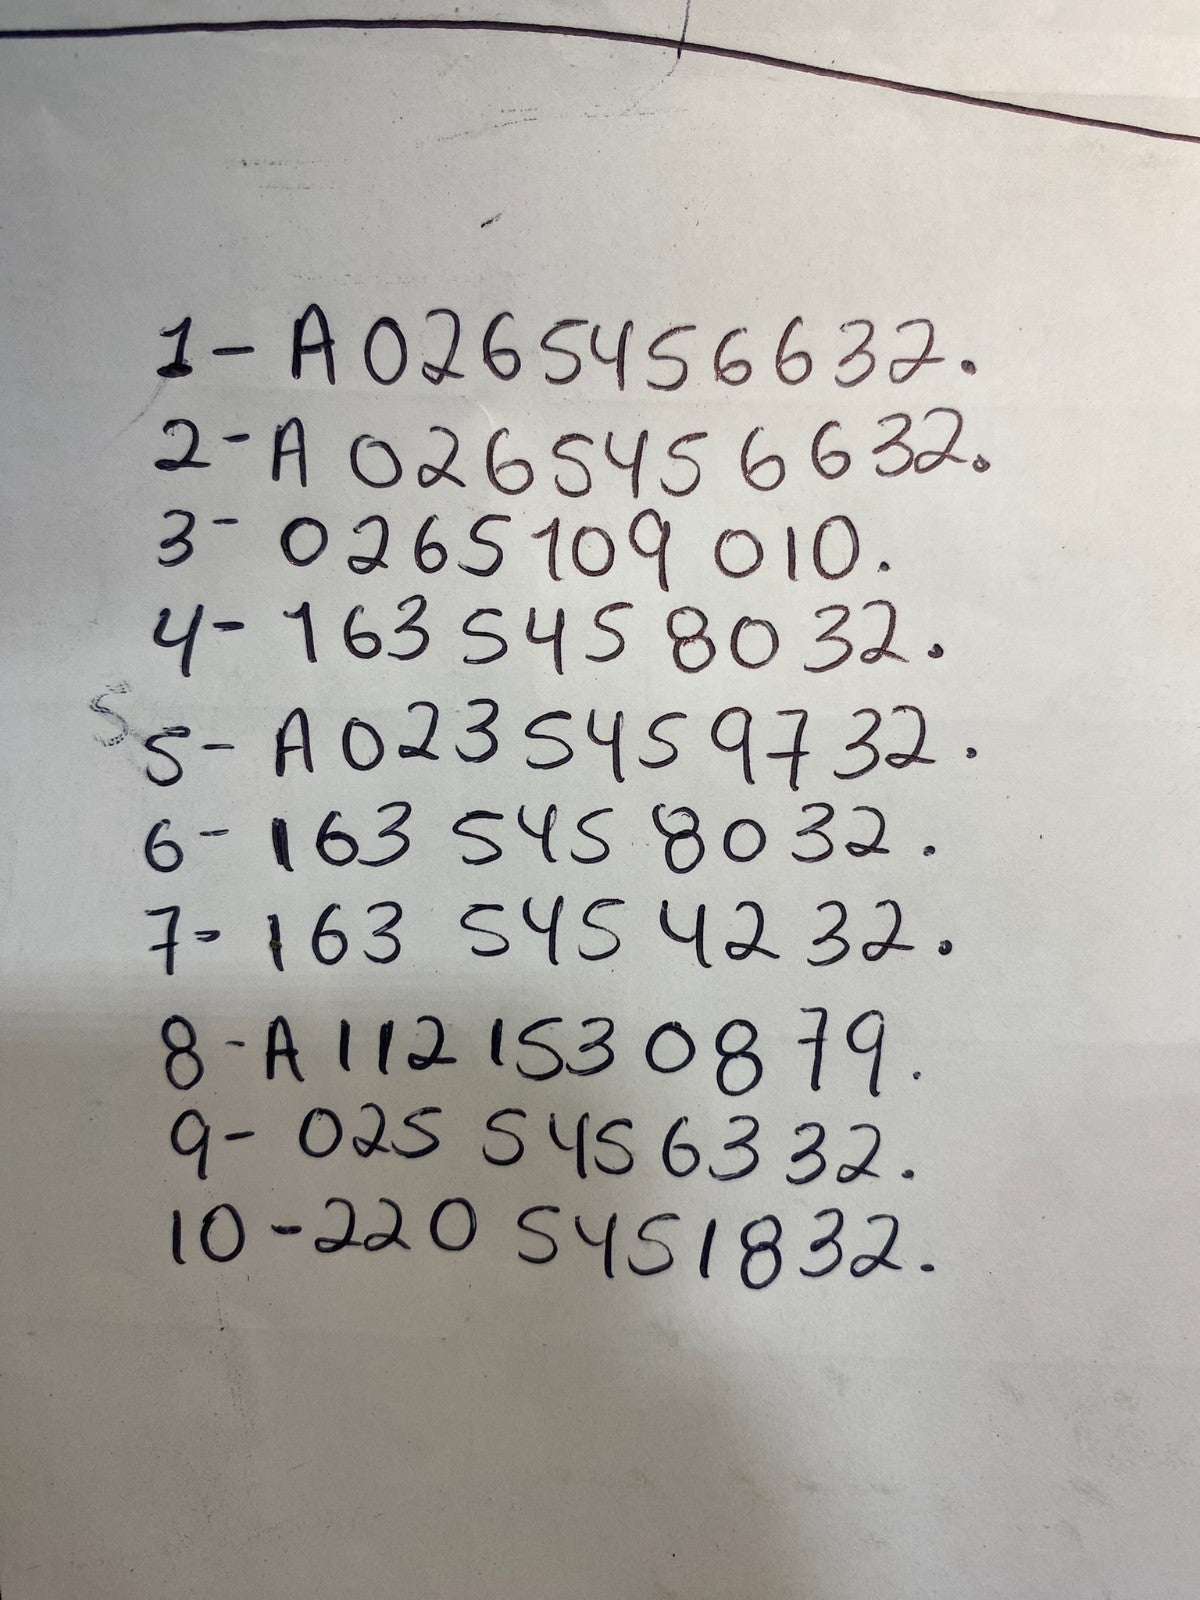 1- A0265456632.
2- A 0265456632.
3- 0265109 010.
4- 163 545 8032.
5
5- A0235459732.
6- 163 545 8032.
7- 163 545 4232.
8- A1121530879.
9- 025 5456332.
10-220 5451832.